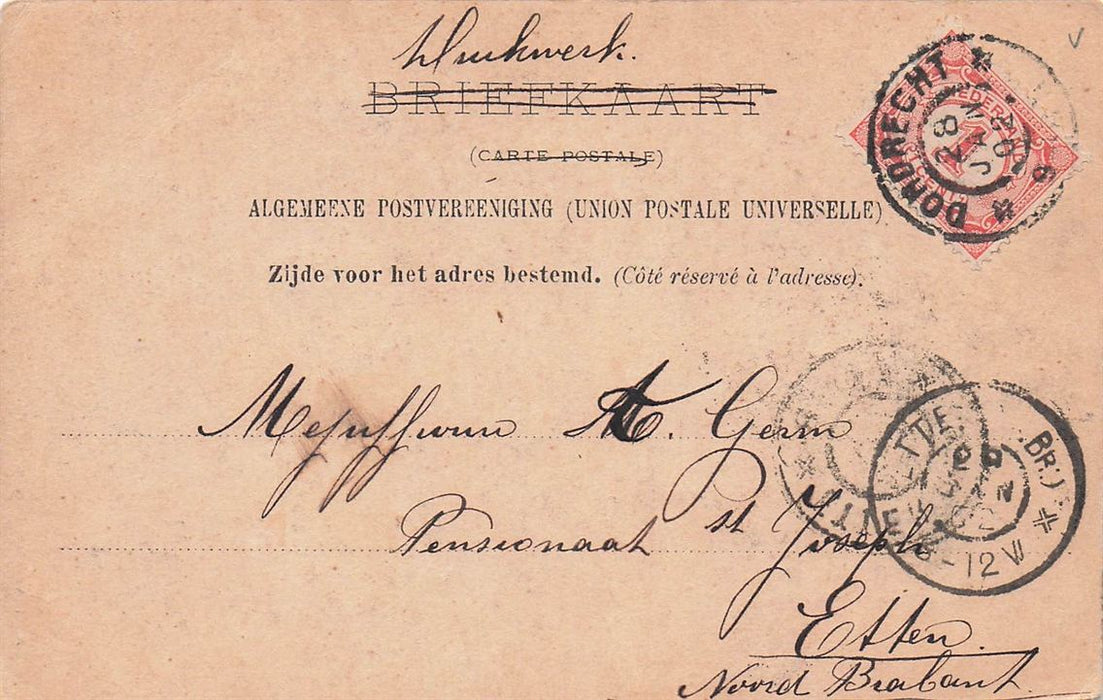 Drukwerk.
BRIEFKAART
(CARTE POSTALE)
ALGEMEENE POSTVEREENIGING (UNION POSTALE UNIVERSELLE)
Zijde voor het adres bestemd. (Côté réservé à l'adresse).
DORDRECHT
28 JAN 02
NEDERLAND
1
CENT
Mejuffrouw A. Germ
Pensionaat St Joseph
Etten.
Noord Brabant
8-12 V